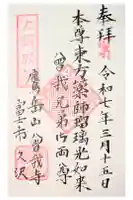 奉拝
令和七年三月十五日
本尊東方薬師瑠璃光如来
曽我兄弟御両尊
鷹岳山
曽我寺
富士市
久沢